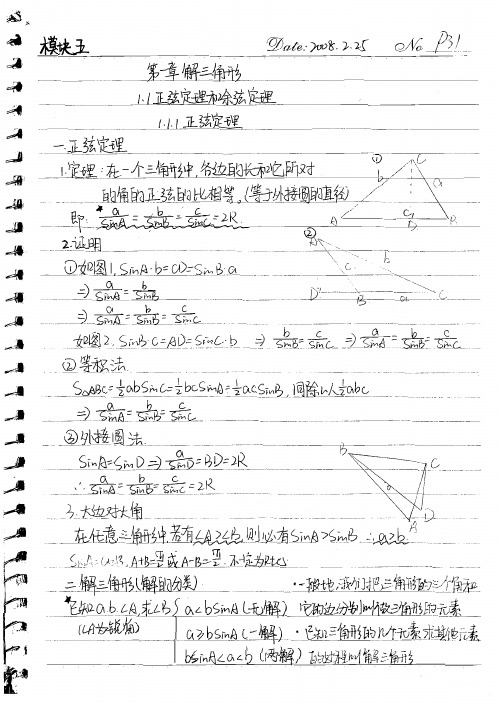 模块五 Date: 2008.2.25 No P31
第一章 解三角形
1.1 正弦定理和余弦定理
1.1.1 正弦定理
一.正弦定理
1.定理:在一个三角形中,各边的长和它所对
的角的正弦的比相等。(等于外接圆的直径)
即: * a/SinA = b/SinB = c/SinC = 2R.
① A B C D a b c
2.证明
② A B C D a b c
①如图1, SinA·b=CD=SinB·a
⇒ a/SinA = b/SinB
⇒ a/SinA = b/SinB = c/SinC
如图2, SinB·c=AD=SinC·b ⇒ b/SinB = c/SinC ⇒ a/SinA = b/SinB = c/SinC
②等积法
S△ABC=½abSinC=½bcSinA=½acSinB, 同除以½abc
⇒ a/SinA = b/SinB = c/SinC
③外接圆法
B C A D
SinA=SinD ⇒ a/SinD=BD=2R
∴ a/SinA = b/SinB = c/SinC = 2R
3.大边对大角
在任意三角形中,若有∠A≥∠B,则必有SinA>SinB ∴a≥b
A+B= 或A-B= 不定为Rt△
二.解三角形(解的分类) ·一般地,我们把三角形的三个角和
*已知a.b.∠A,求∠B { a<bsinA(无解) 它的边分别叫做三角形的元素
(∠A为锐角) a≥bsinA(一解) ·已知三角形的几个元素求其他元素
bsinA<a<b(两解) 的过程叫解三角形